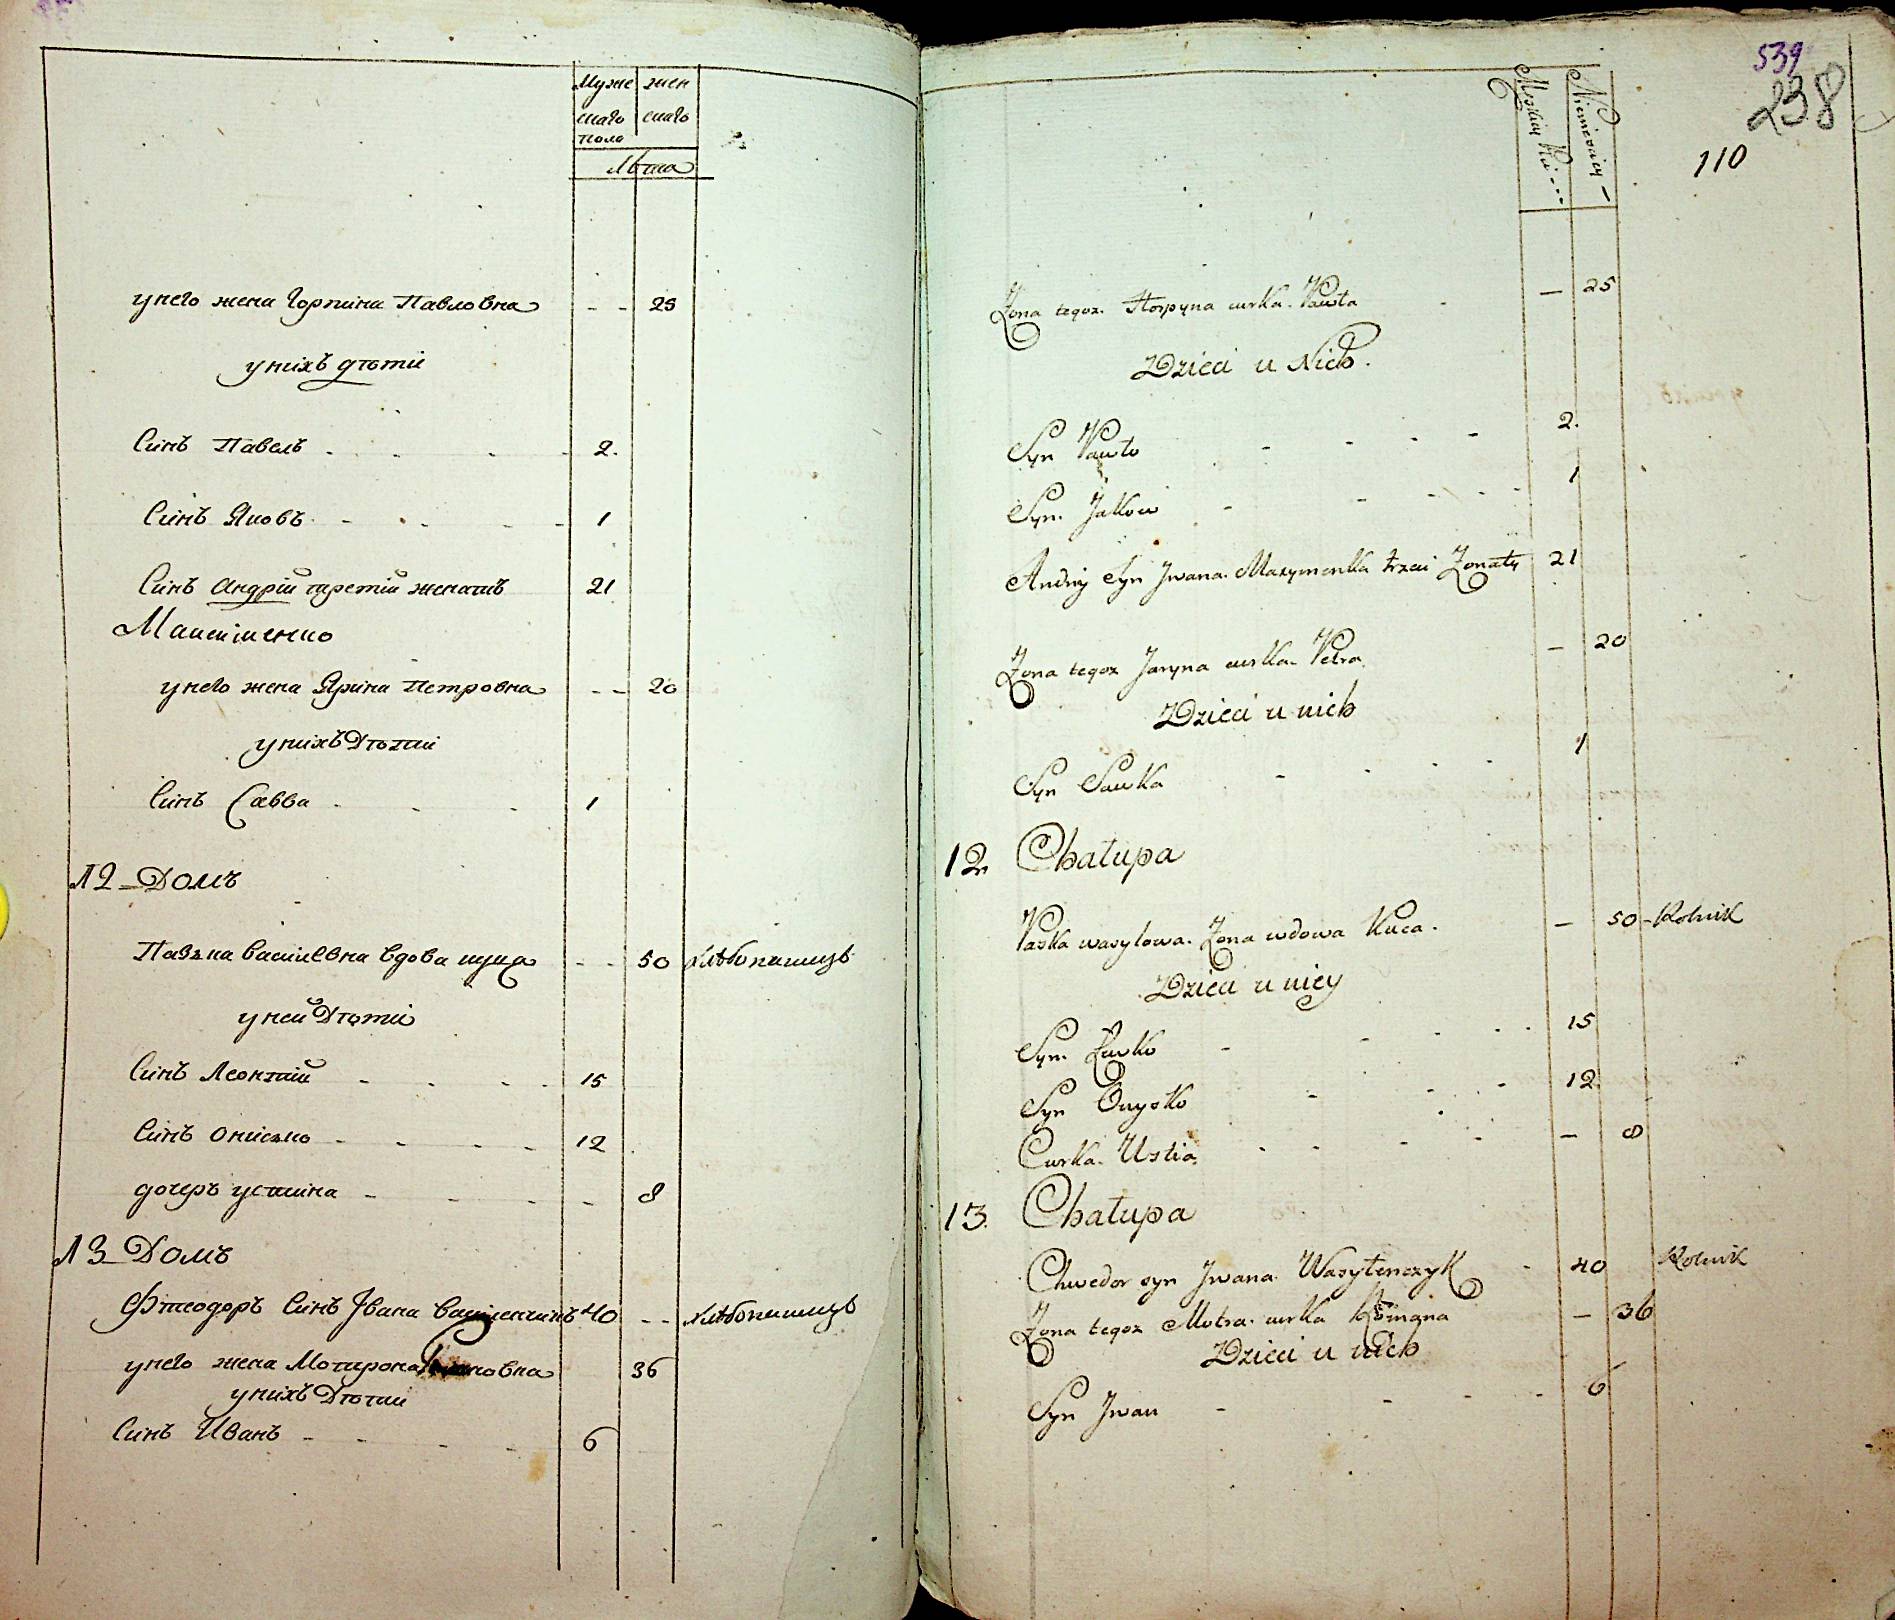 Муже жен
скаго скаго
пола
Лѣта
у него жена Горпина Павловна - - 25
у нихъ дѣти
Синъ Павелъ - - - - 2.
Синъ Яковъ - - - - 1
Синъ Андрій третій женатъ 21
Максименко
у него жена Ярина Петровна - - 20
у нихъ Дѣти
Синъ Савва - - - 1
12 Домъ
Паѣзка Василевна вдова куца - - 50 хлѣбопашецъ
у ней Дѣти
Синъ Леонтій - - - - 15
Синъ Онисько - - - - 12
дочерь устина - - - - 8
13 Домъ
Фтеодоръ Синъ Івана Василенчикъ 40 - - хлѣбопашецъ
у него жена Мотрона 36
у нихъ Дѣти
Синъ Иванъ - - - - 6
539
238
110
Męzkiey Niewieściey
Żona tegoż. Horpyna curka. Pawła - — 25
Dzieci u Nich.
Syn Pawło - - - - 2.
Syn. Jakow - - - - 1
Andrij Syn Jwana. Maxymenka trzeci Żonaty 21
Żona tegoż Jaryna curka. Petra — 20
Dzieci u nich
Syn Sawka - - - - 1
12. Chałupa
Paska wasylowa. Żona wdowa Kuca. — 50 - Rolnik
Dzieci u niey
Syn. Łewko - - - - 15
Syn Onyśko - - - 12.
Curka. Ustia. - - - - — 8
13. Chałupa
Chwedor syn Jwana Wasylenczyk - 40 Rolnik
Żona tegoż Motra. curka Romana — 36
Dzieci u nich
Syn Jwan - - - - 6